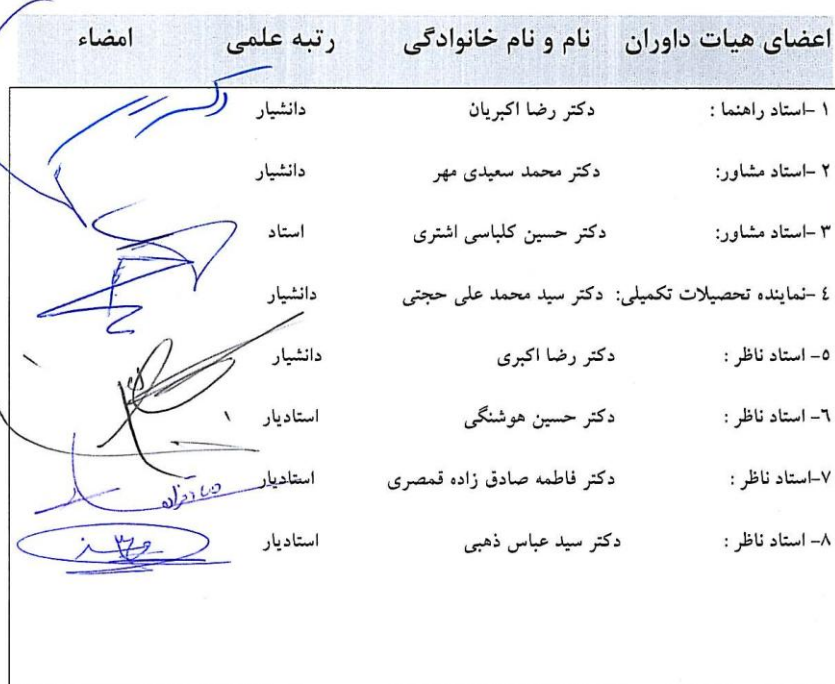 اعضای هیات داوران نام و نام خانوادگی رتبه علمی امضاء
۱ –استاد راهنما : دکتر رضا اکبریان دانشیار
۲ –استاد مشاور: دکتر محمد سعیدی مهر دانشیار
۳ –استاد مشاور: دکتر حسین کلباسی اشتری استاد
٤ –نماینده تحصیلات تکمیلی: دکتر سید محمد علی حجتی دانشیار
۵– استاد ناظر : دکتر رضا اکبری دانشیار
٦– استاد ناظر : دکتر حسین هوشنگی استادیار
۷–استاد ناظر : دکتر فاطمه صادق زاده قمصری استادیار
۸– استاد ناظر : دکتر سید عباس ذهبی استادیار